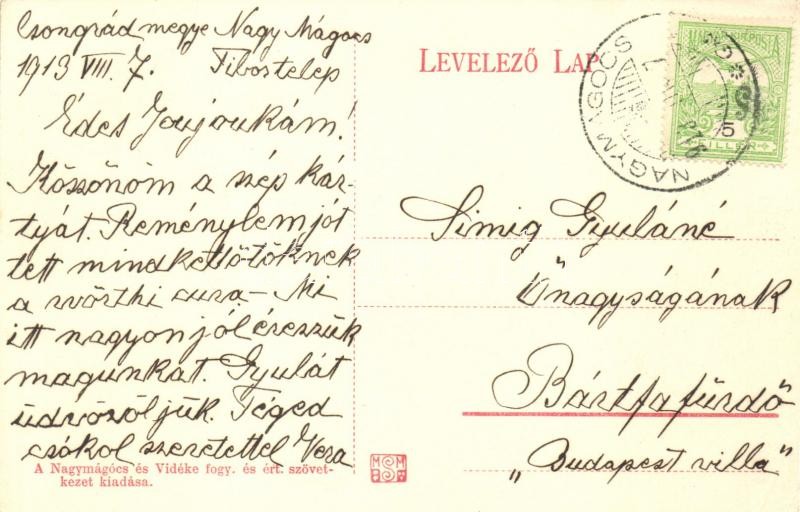 Csongrád megye Nagy Mágocs
1913 VIII. 7. Tibortelep
Édes Joujoukám!
Köszönöm a szép kár-
tyát. Reménylem jót
tett mindkettőtöknek
a wörthi cura – Mi
itt nagyon jól érezzük
magunkat. Gyulát
üdvözöljük. Téged
csókol szeretettel Vera
A Nagymágócs és Vidéke fogy. és ért. szövet-
kezet kiadása.
LEVELEZŐ LAP
NAGYMÁGOCS
5
FILLER
Simig Gyuláné
Őnagyságának
Bártfafürdő
„Budapest villa"